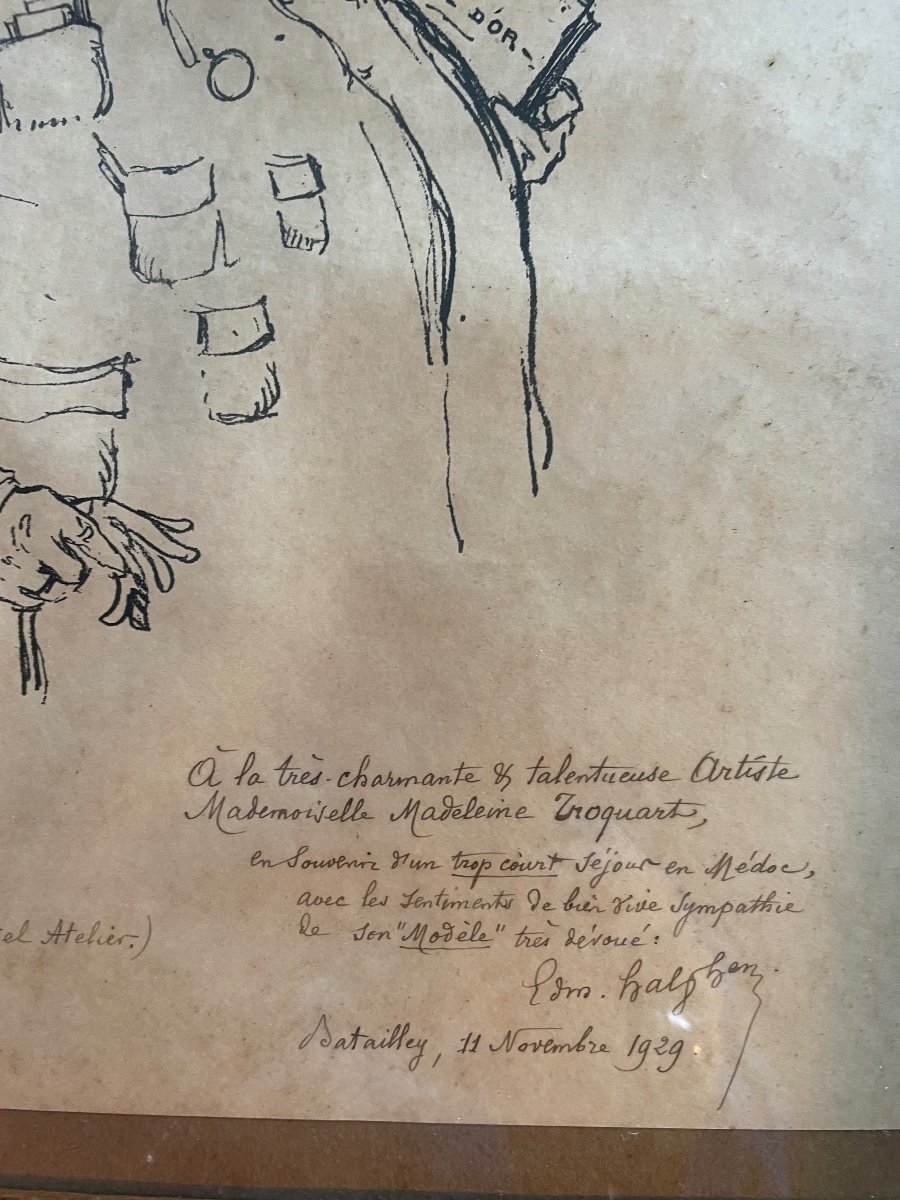 D'OR-
À la très-charmante & talentueuse Artiste
Mademoiselle Madeleine Troquart,
en Souvenir d'un trop court Séjour en Médoc,
avec les sentiments de bien vive Sympathie
de son "Modèle" très dévoué:
Edm. Halphen.
el Atelier.)
Batailley, 11 Novembre 1929.